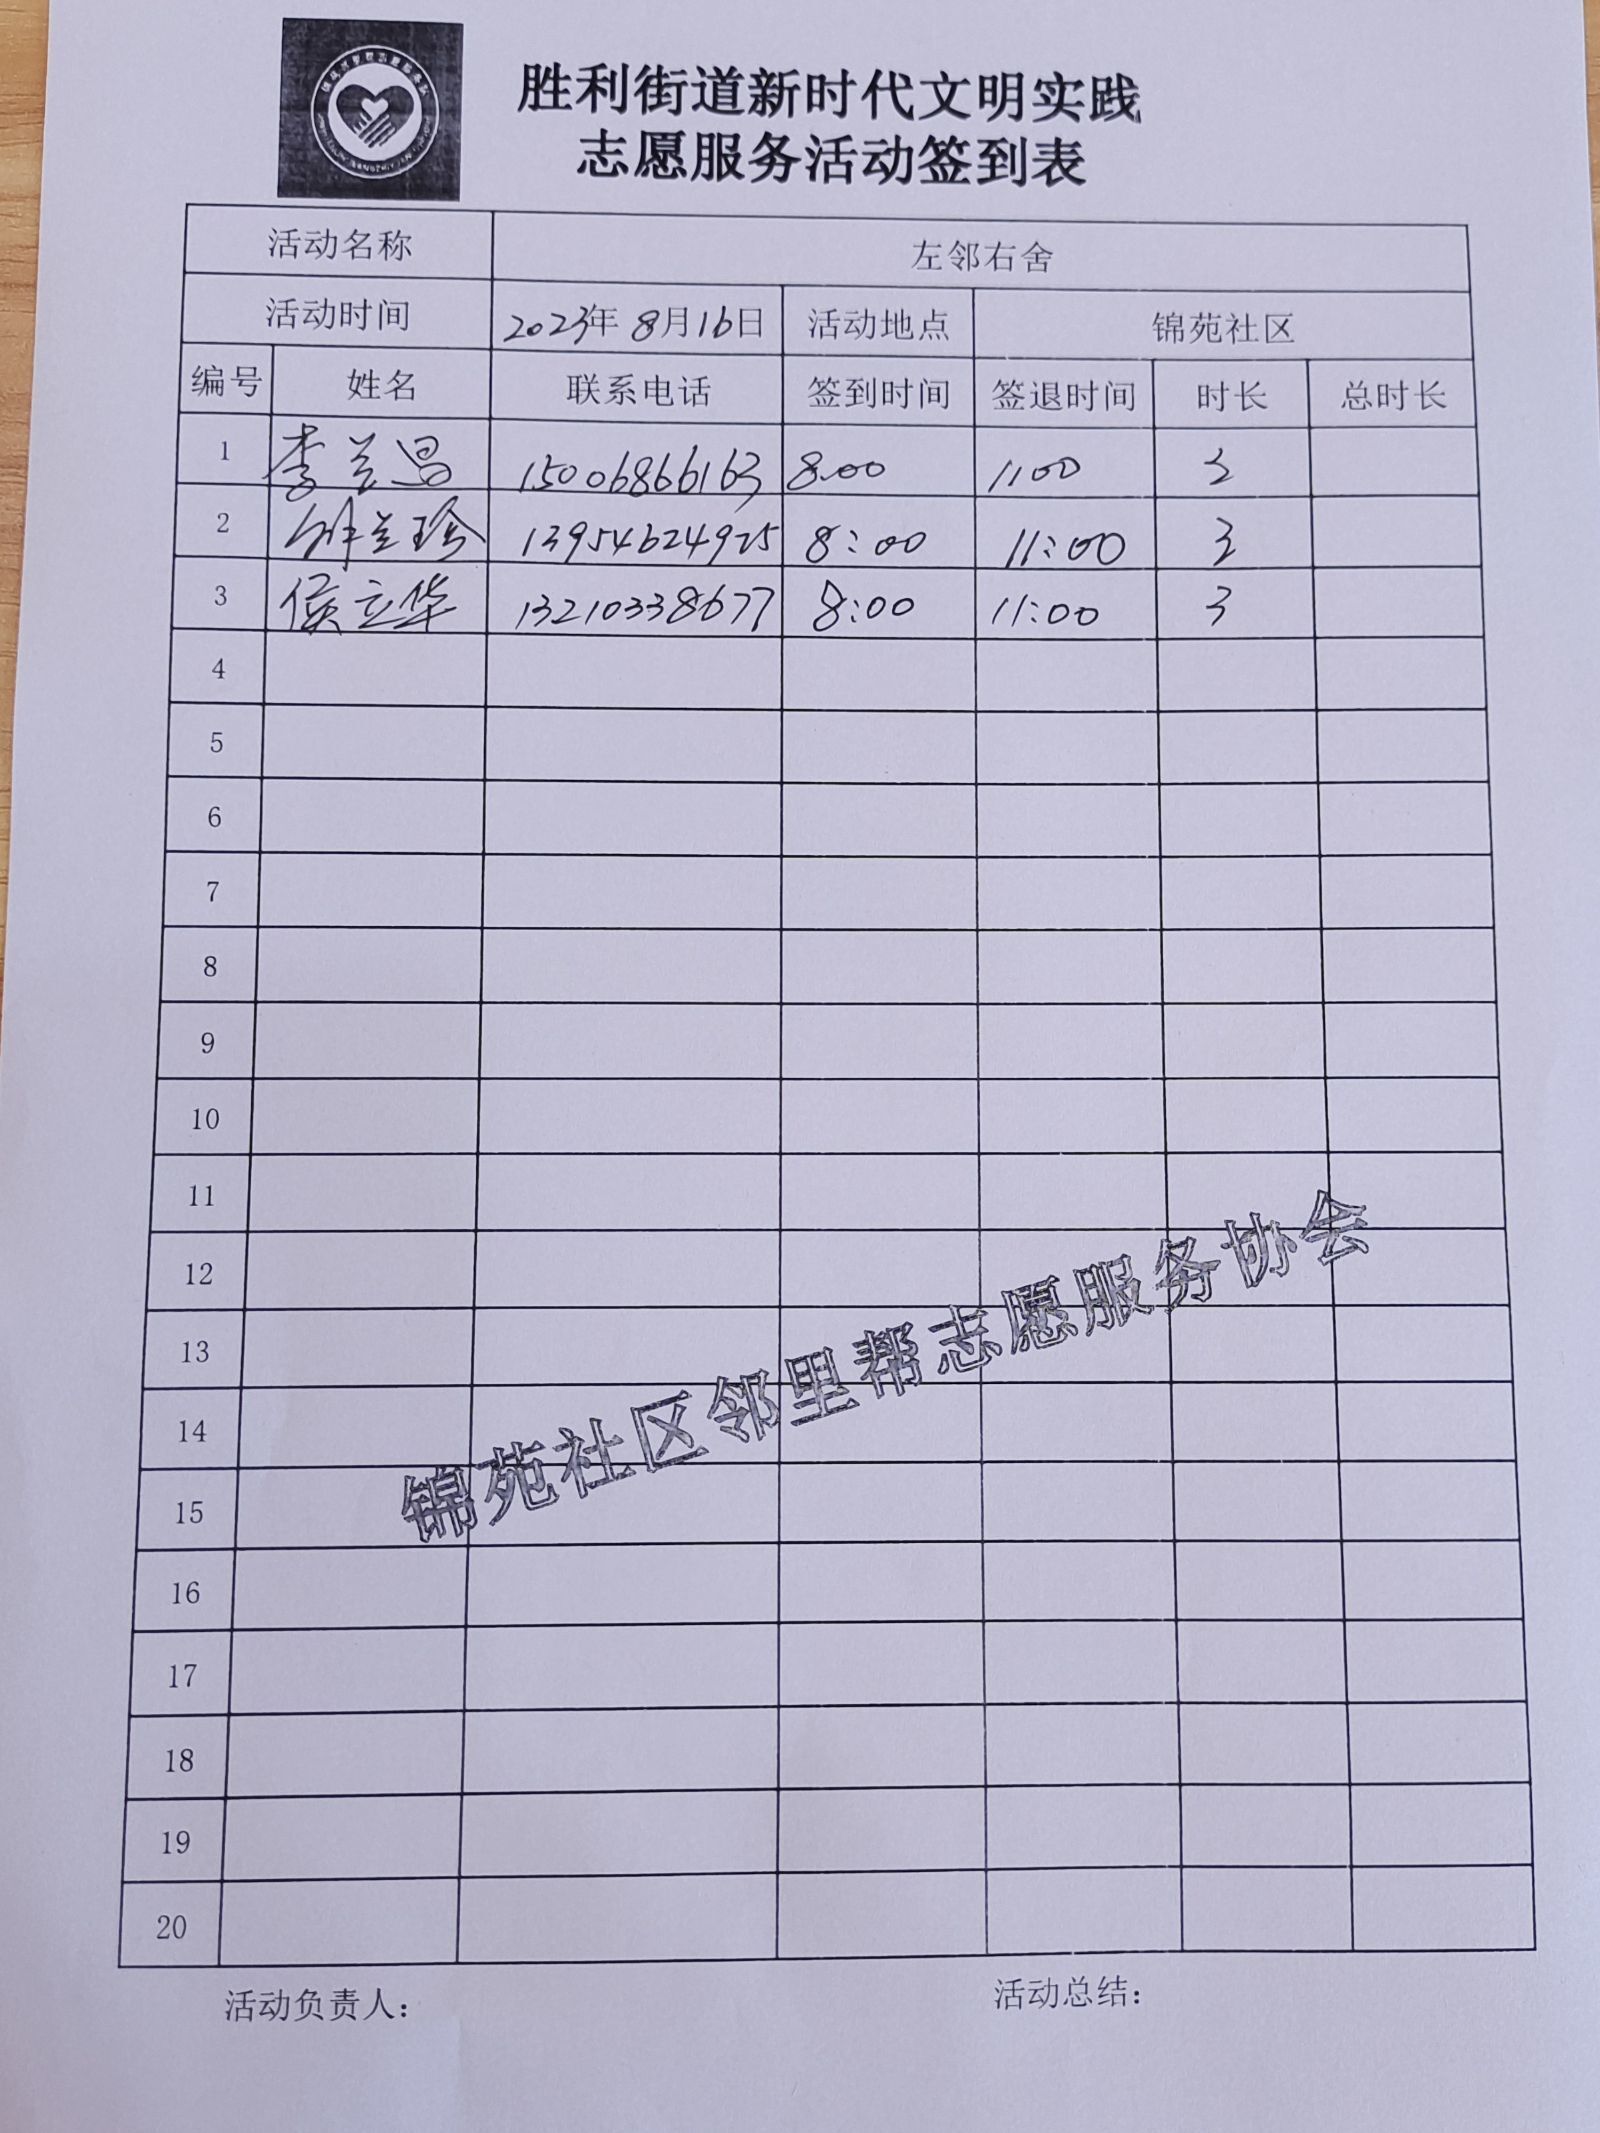 胜利街道新时代文明实践
志愿服务活动签到表
活动名称 左邻右舍
活动时间 2023年 8月16日 活动地点 锦苑社区
编号 姓名 联系电话 签到时间 签退时间 时长 总时长
1 李兰昌 15006866163 8:00 11:00 3
2 兰珍 13954624925 8:00 11:00 3
3 侯立华 13210338677 8:00 11:00 3
4
5
6
7
8
9
10
11
12
13
14
15
16
17
18
19
20
锦苑社区邻里帮志愿服务协会
活动负责人： 活动总结：